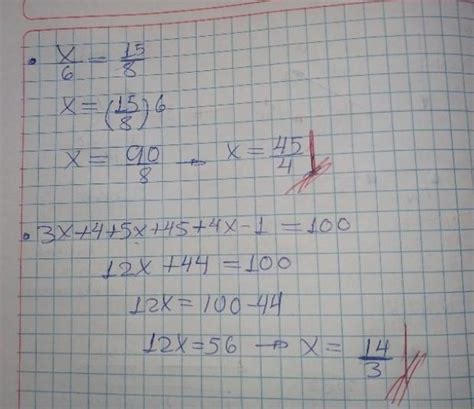 • x/6 = 15/8
x = (15/8)6
x = 90/8 → x = 45/4
• 3x+4+5x+45+4x-1 = 100
12x +44 = 100
12x = 100-44
12x = 56 → x = 14/3